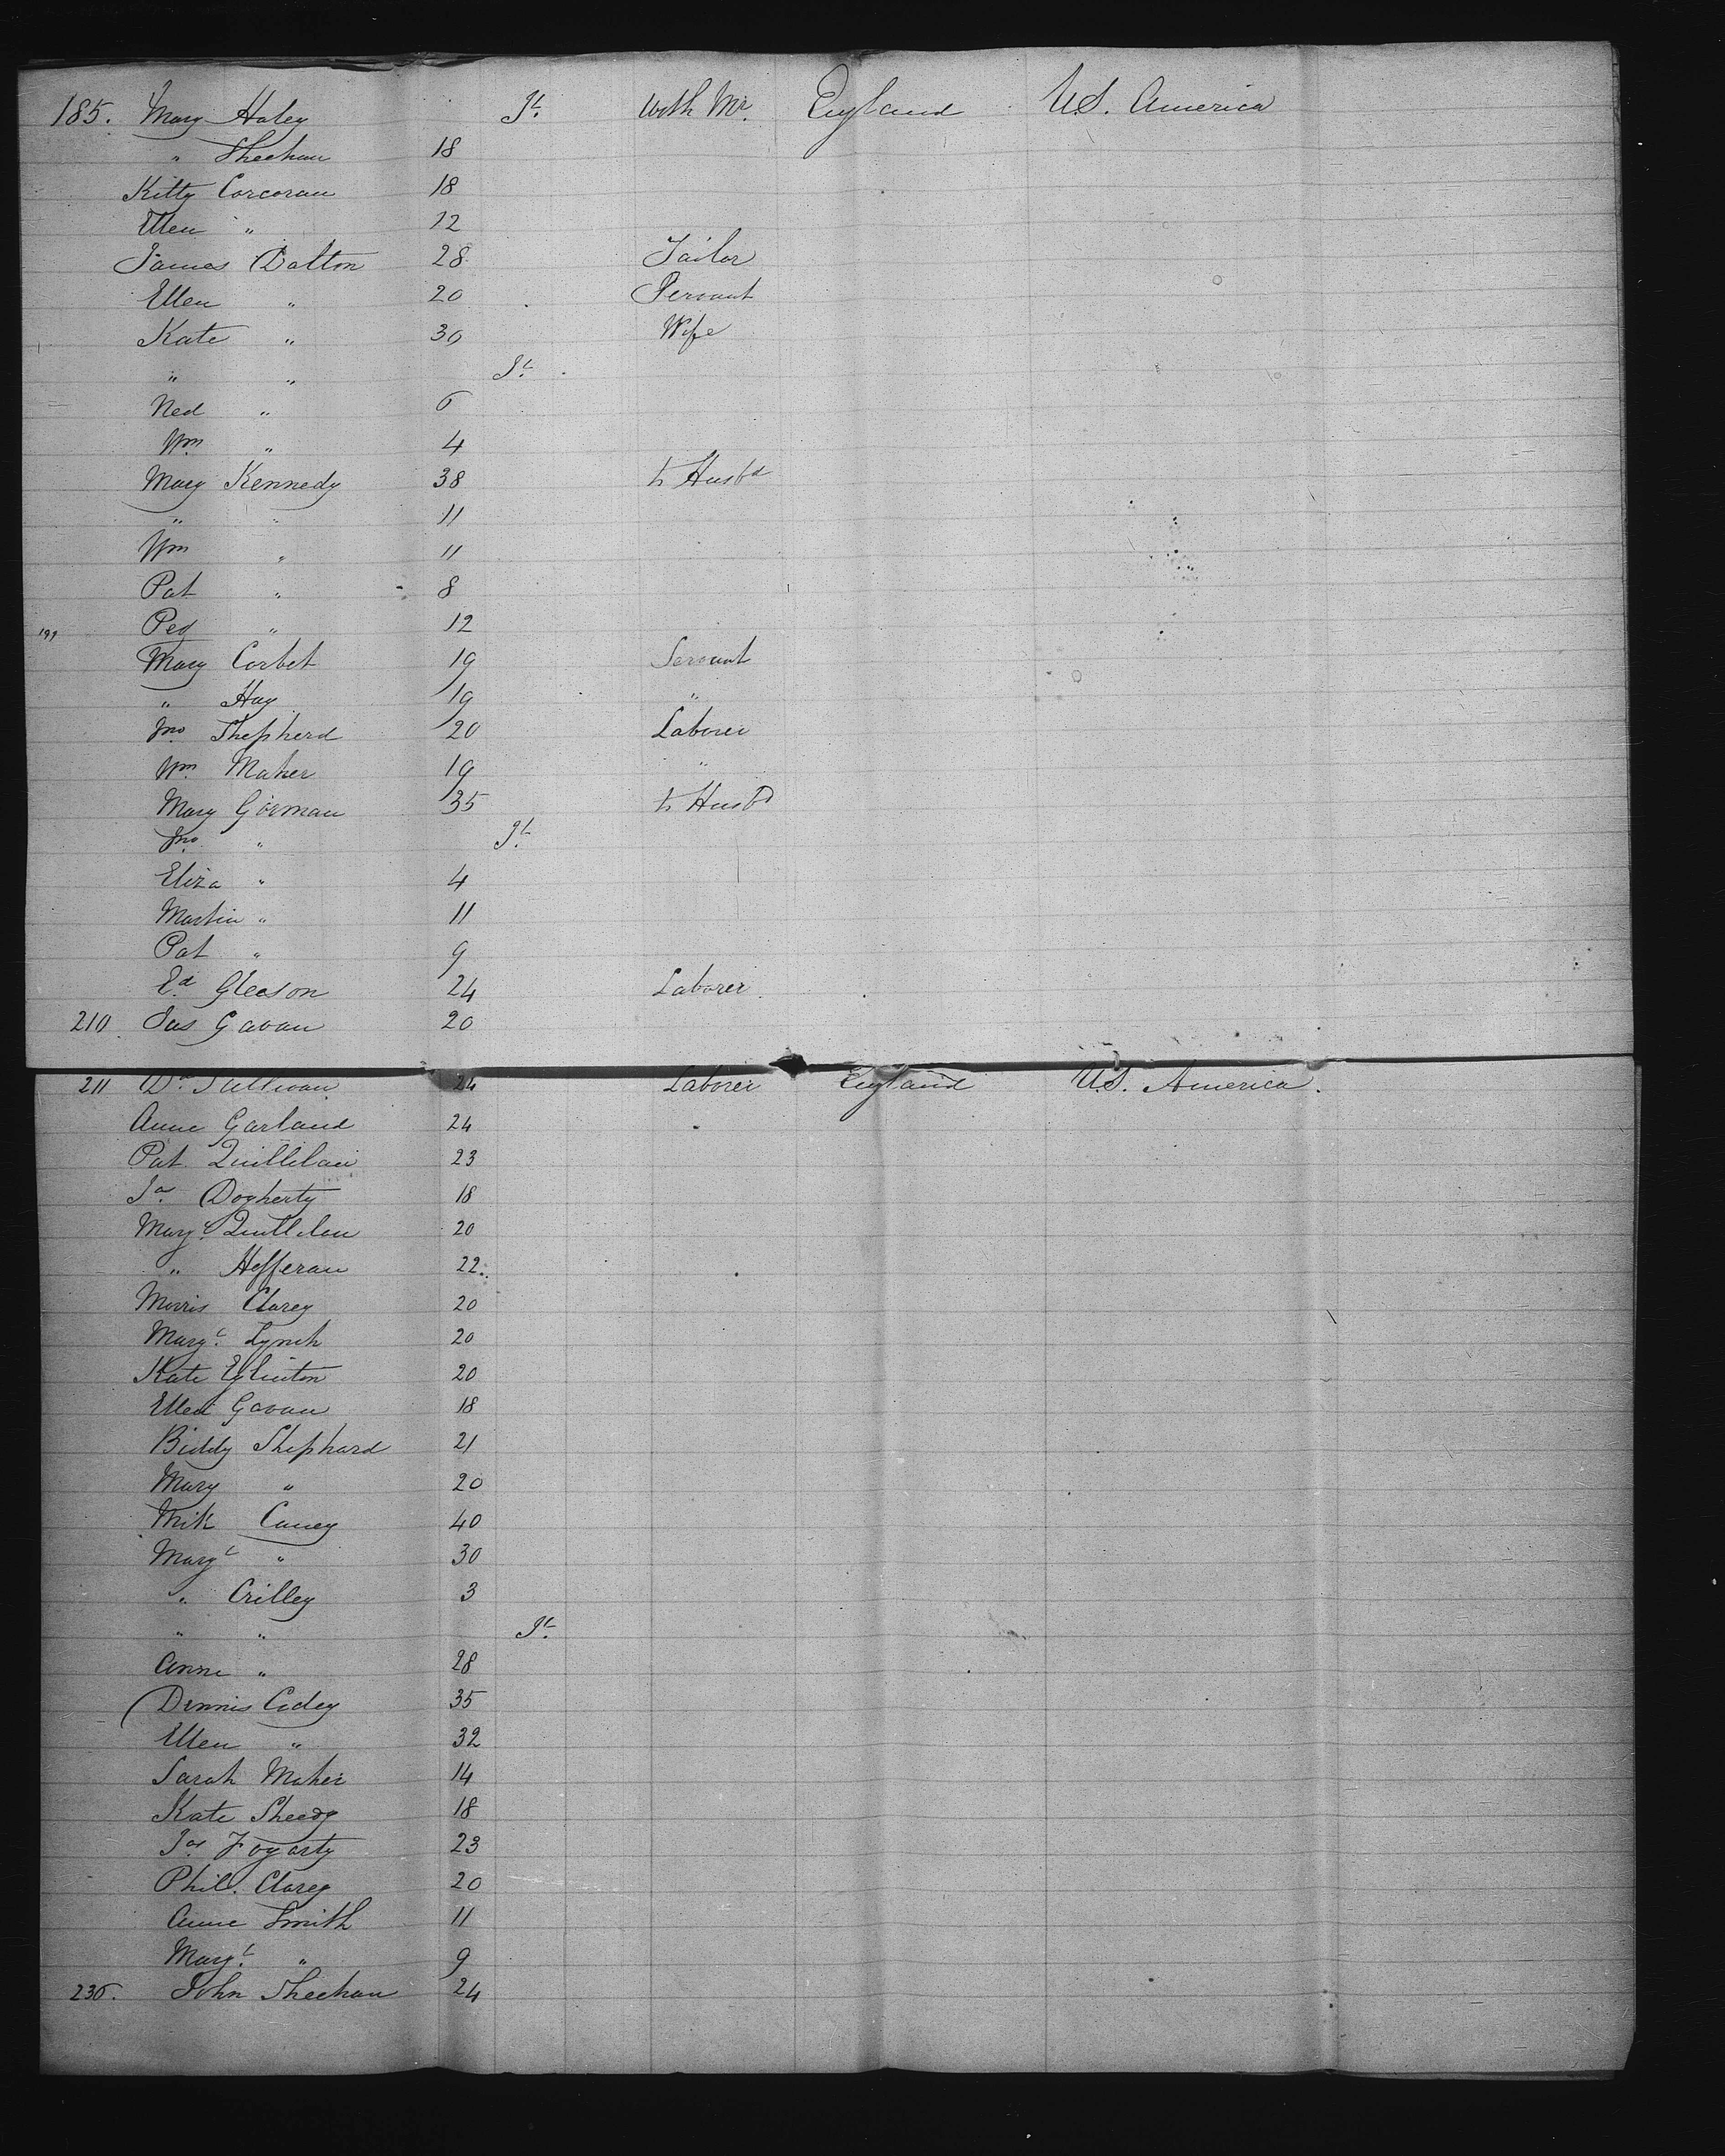 185. Mary Haley It. With Mr. England U.S. America
" Sheehan 18
Kitty Corcoran 18
Ellen " 12
James Dalton 28 Tailor
Ellen " 20 Servant
Kate " 30 Wife
" " It.
Ned " 6
Wm " 4
Mary Kennedy 38 to Husbd
" " 11
Wm " 11
Pat " 8
199 Peg " 12
Mary Corbet 19 Servant
" Hay 19 "
Jno Shepherd 20 Laborer
Wm Maher 19 "
Mary Gorman 35 to Husbd
Jno " It.
Eliza " 4
Martin " 11
Pat " 9
Ed Gleason 24 Laborer
210 Jas Gavan 20
211 Sullivan 24 Laborer England U.S. America.
Anne Garland 24
Pat Quillilan 23
Jas Dogherty 18
Margt Quillilan 20
" Hefferan 22
Morris Clarey 20
Margt Lynch 20
Kate Eglinton 20
Ellen Gavan 18
Biddy Shephard 21
Mary " 20
Mik Caney 40
Margt " 30
" Crilley 3
" " It.
Anne " 28
Dennis 35
Ellen " 32
Sarah Maher 14
Kate Sheedy 18
Jas Fogarty 23
Phil. Clarey 20
Anne Smith 11
Margt " 9
236. John Sheehan 24